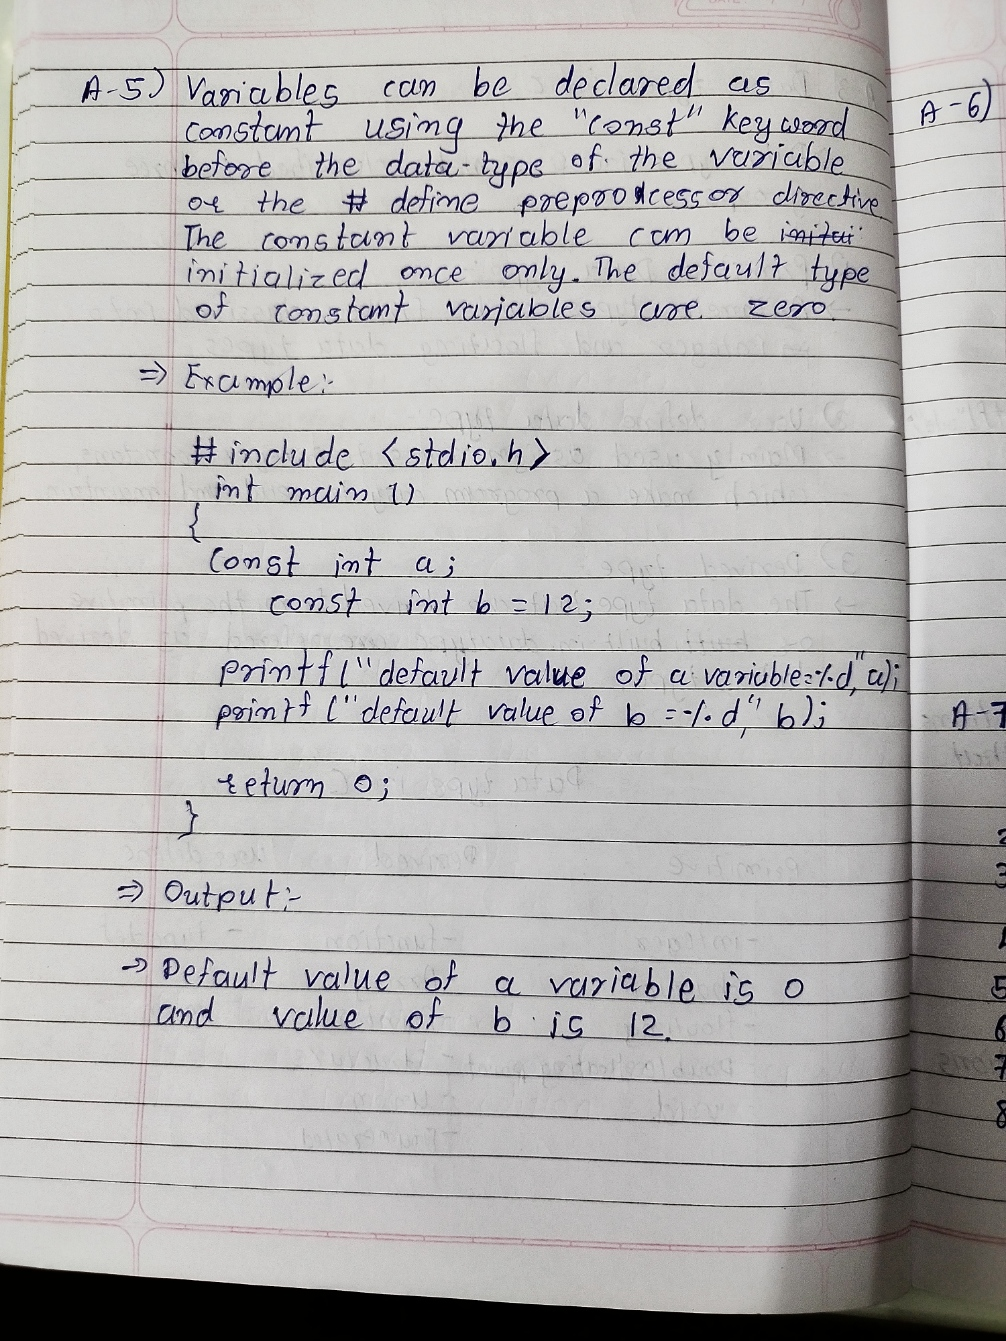 A-5) Variables can be declared as
constant using the "const" keyword
before the data-type of the variable
or the # define preprocessor directive
The constant variable can be initai
initialized once only. The default type
of constant variables are zero.
⇒ Example:-
# include <stdio.h>
int main ()
{
Const int a;
const int b = 12;
printf ("default value of a variable=%d", a);
printf ("default value of b =%d", b);
return 0;
}
⇒ Output:-
→ Default value of a variable is 0
and value of b is 12.
A-6)
A-7
2
3
5
6
7
8